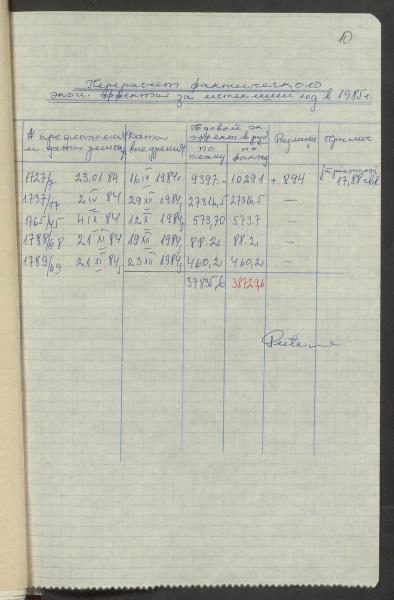 10
Перерасчет фактического
экон. эффекта за истекший год в 1985 г.
№ предложения и дата Дата внедрения Годовой эк. эффект в руб. по плану по факту Разница Примеч
1727/7 23.01 84 16 IV 1984г. 9397.- 10291 + 894 17,88
1737/17 2 IV 84 29 XII 1984г. 27316,5 27316,5 —
1765/45 4 IX 84 12 X 1984г. 573,70 573.7 —
1788/68 21 XI 84 19 XII 1984г. 88.2 88.2 —
1789/69 21 XI 84 23 XII 1984г. 460,2 460,2 —
37835,6 38729,6